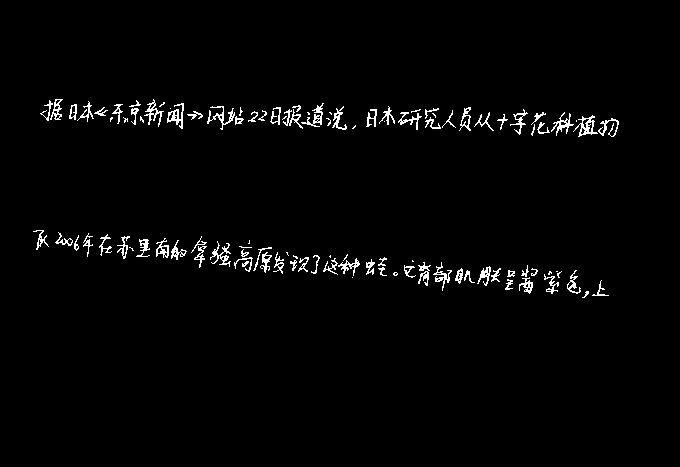 据日本《东京新闻》网站22日报道说,日本研究人员从十字花科植物
队2006年在苏里南的拿骚高原发现了这种蛙。它背部肌肤呈茜紫色,上